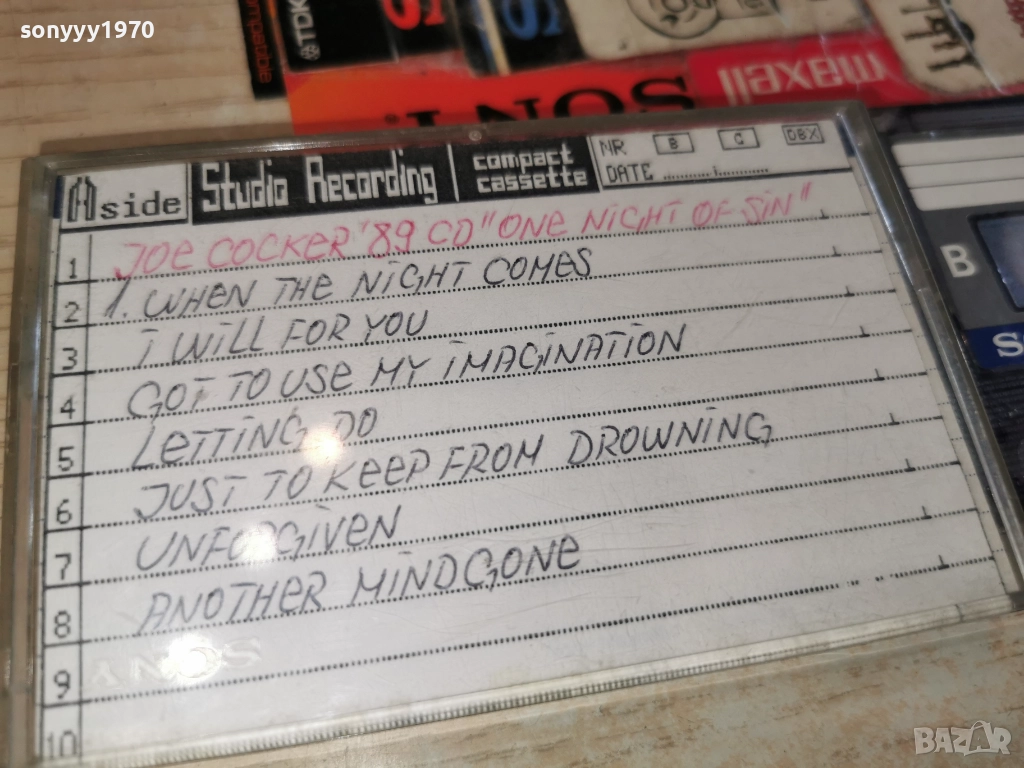 sonyyy1970
compatible
TDK
S
S
SONY
maxell
A side
Studio Recording
compact cassette
NR B C DBX
DATE
1 JOE COCKER '89 CD "ONE NIGHT OF SIN"
2 1. WHEN THE NIGHT COMES
3 I WILL FOR YOU
4 GOT TO USE MY IMAGINATION
5 LETTING DO
6 JUST TO KEEP FROM DROWNING
7 UNFORGIVEN
8 ANOTHER MIND GONE
9
10
SONY
B
S
BAZAR